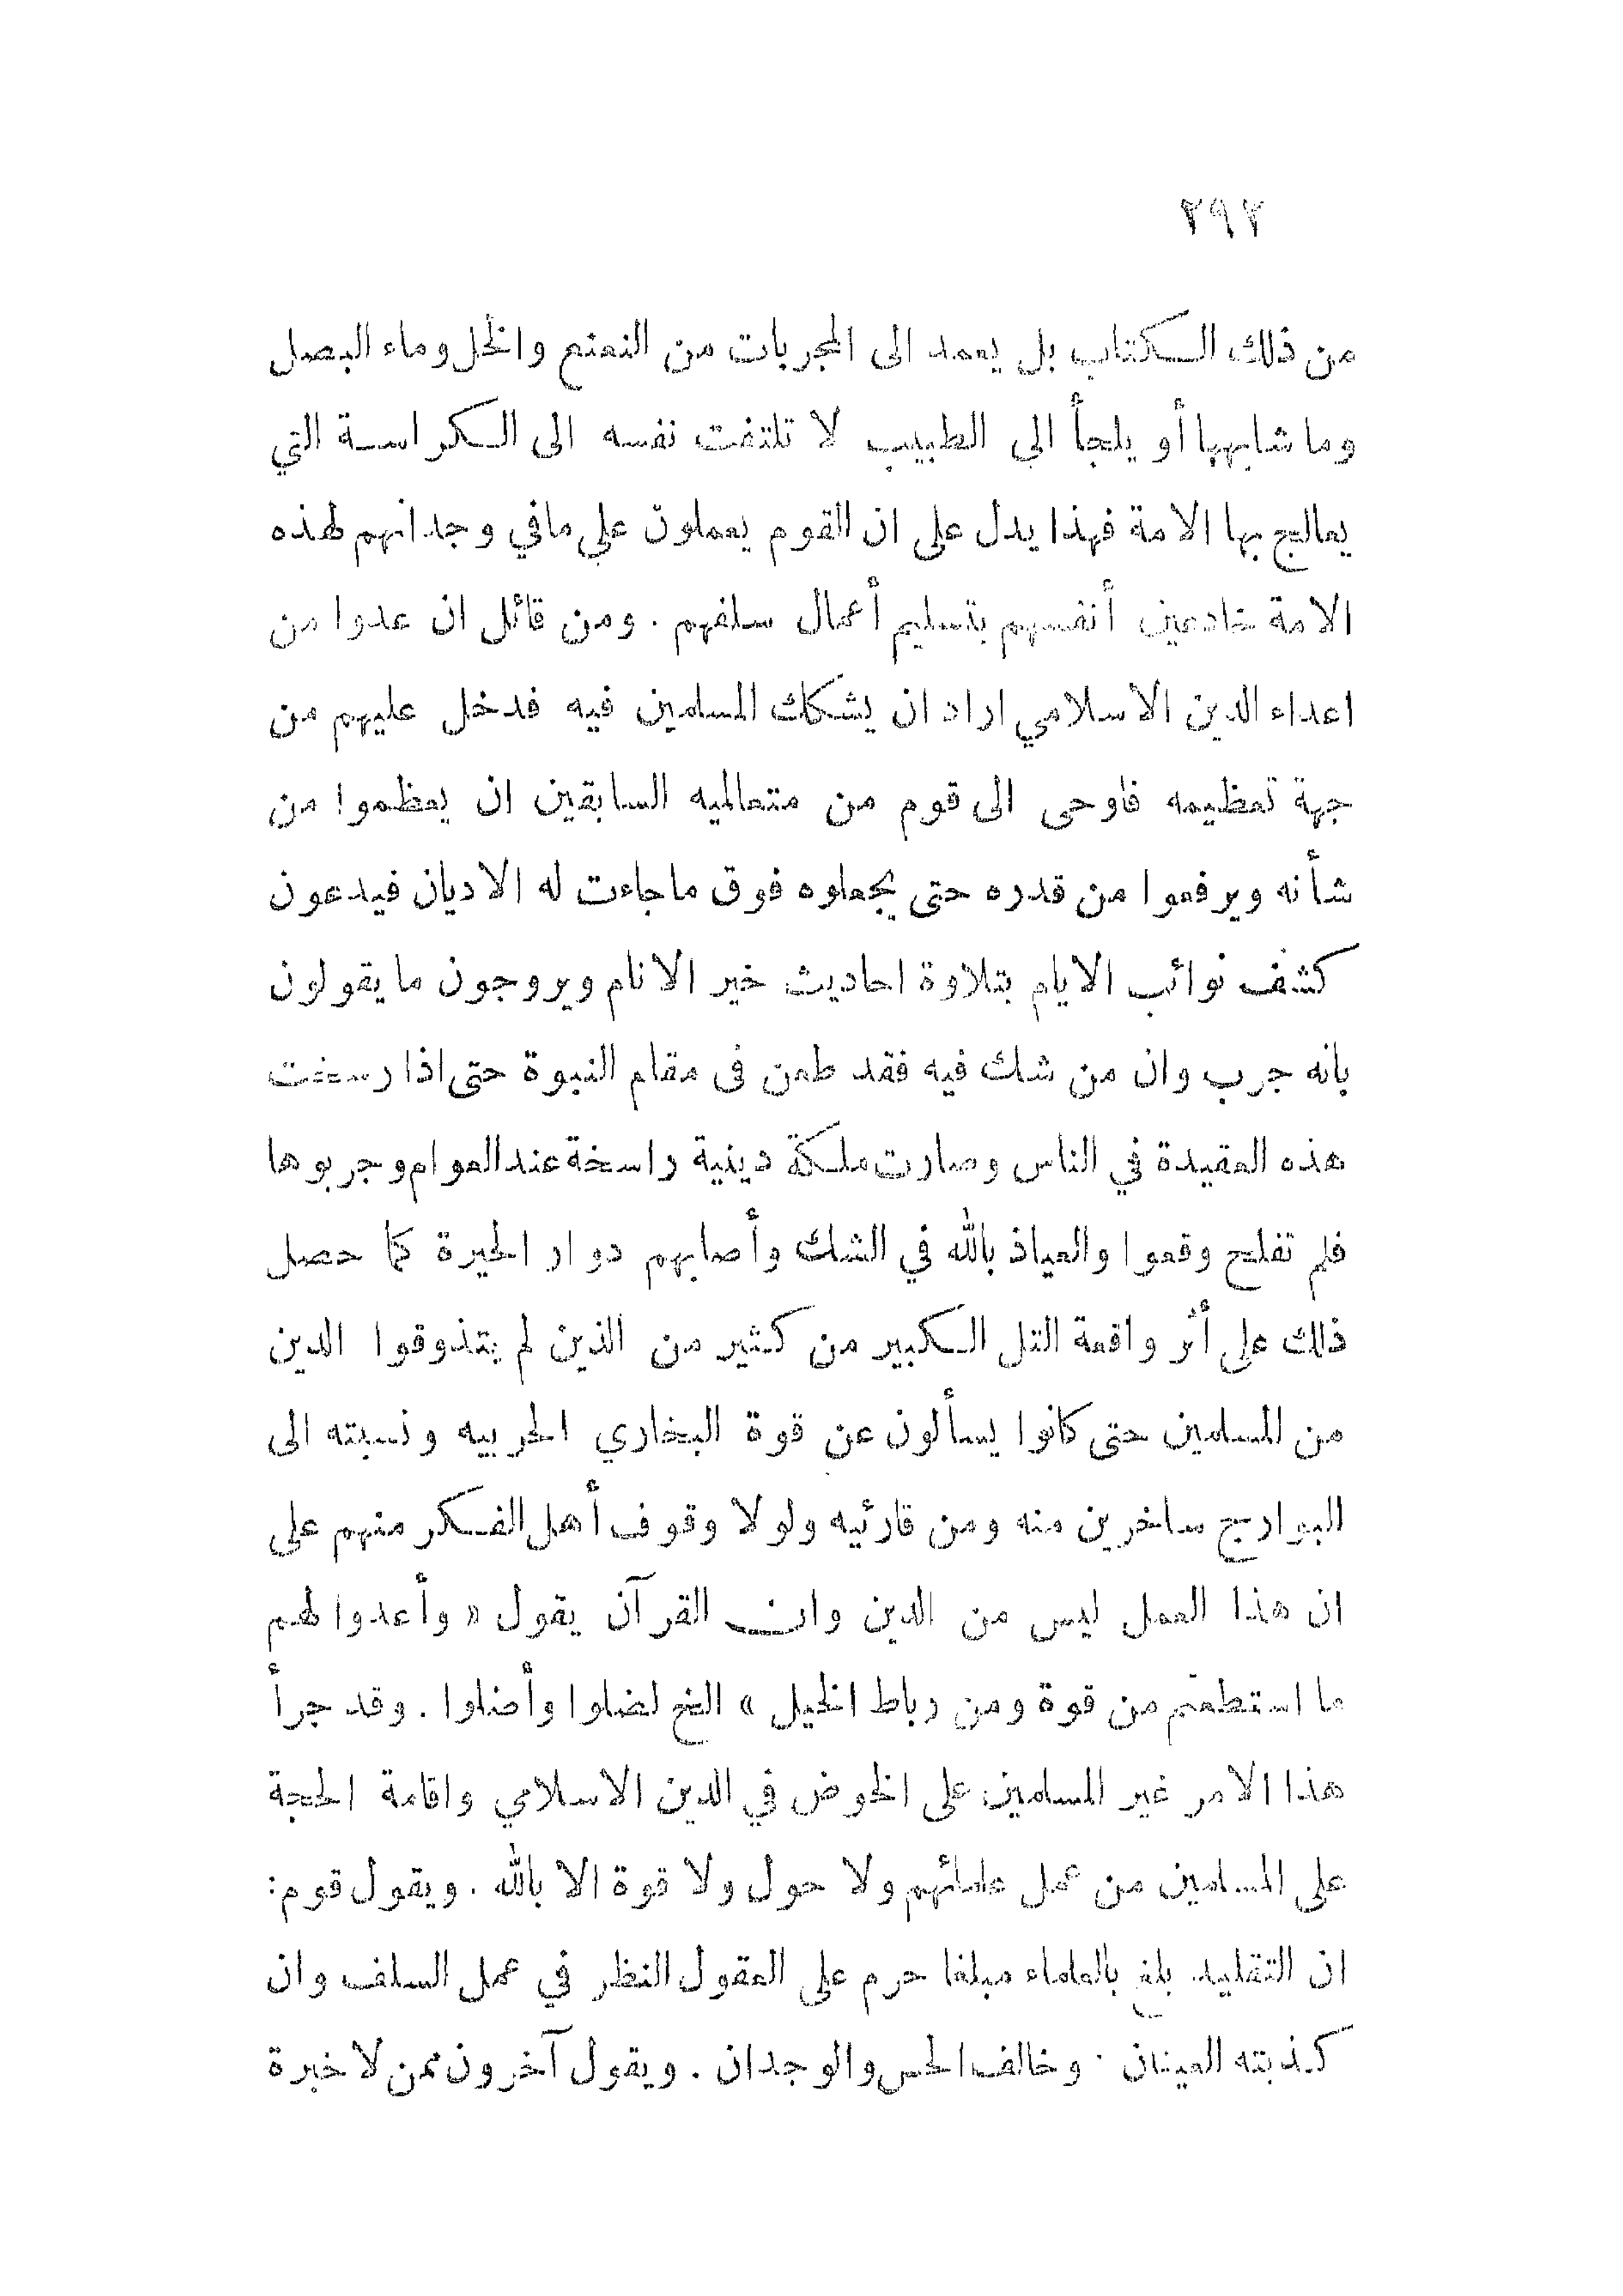 ٢٩٢
من ذلك الكتاب بل يعمد الى المجربات من النعنع والخل وماء البصل
وما شابهها أو يلجأ الى الطبيب لا تلتفت نفسه الى الكراسة التي
يعالج بها الامة فهذا يدل على ان القوم يعملون على ما في وجدانهم لهذه
الامة خادعين أنفسهم بتسليم أعمال سلفهم . ومن قائل ان عدوا من
اعداء الدين الاسلامي اراد ان يشكك المسلمين فيه فدخل عليهم من
جهة تعظيمه فاوحى الى قوم من متعالميه السابقين ان يعظموا من
شأنه ويرفعوا من قدره حتى يجعلوه فوق ما جاءت له الاديان فيدعون
كشف نوائب الايام بتلاوة احاديث خير الانام ويروجون ما يقولون
بانه جرب وان من شك فيه فقد طعن فى مقام النبوة حتى اذا رسخت
هذه العقيدة في الناس وصارت ملكة دينية راسخة عند العوام وجربوها
فلم تفلح وقعوا والعياذ بالله في الشك وأصابهم دوار الحيرة كما حصل
ذلك على أثر واقعة التل الكبير من كثير من الذين لم يتذوقوا الدين
من المسلمين حتى كانوا يسألون عن قوة البخاري الحربيه ونسبته الى
البوارج ساخرين منه ومن قارئيه ولولا وقوف أهل الفكر منهم على
ان هذا العمل ليس من الدين وان القرآن يقول « وأعدوا لهم
ما استطعتم من قوة ومن رباط الخيل » الخ لضلوا وأضلوا . وقد جرأ
هذا الامر غير المسلمين على الخوض في الدين الاسلامي واقامة الحجة
على المسلمين من عمل علمائهم ولا حول ولا قوة الا بالله . ويقول قوم :
ان التقليد بلغ بالعلماء مبلغا حرم على العقول النظر في عمل السلف وان
كذبته العينان . وخالف الحس والوجدان . ويقول آخرون ممن لا خبرة